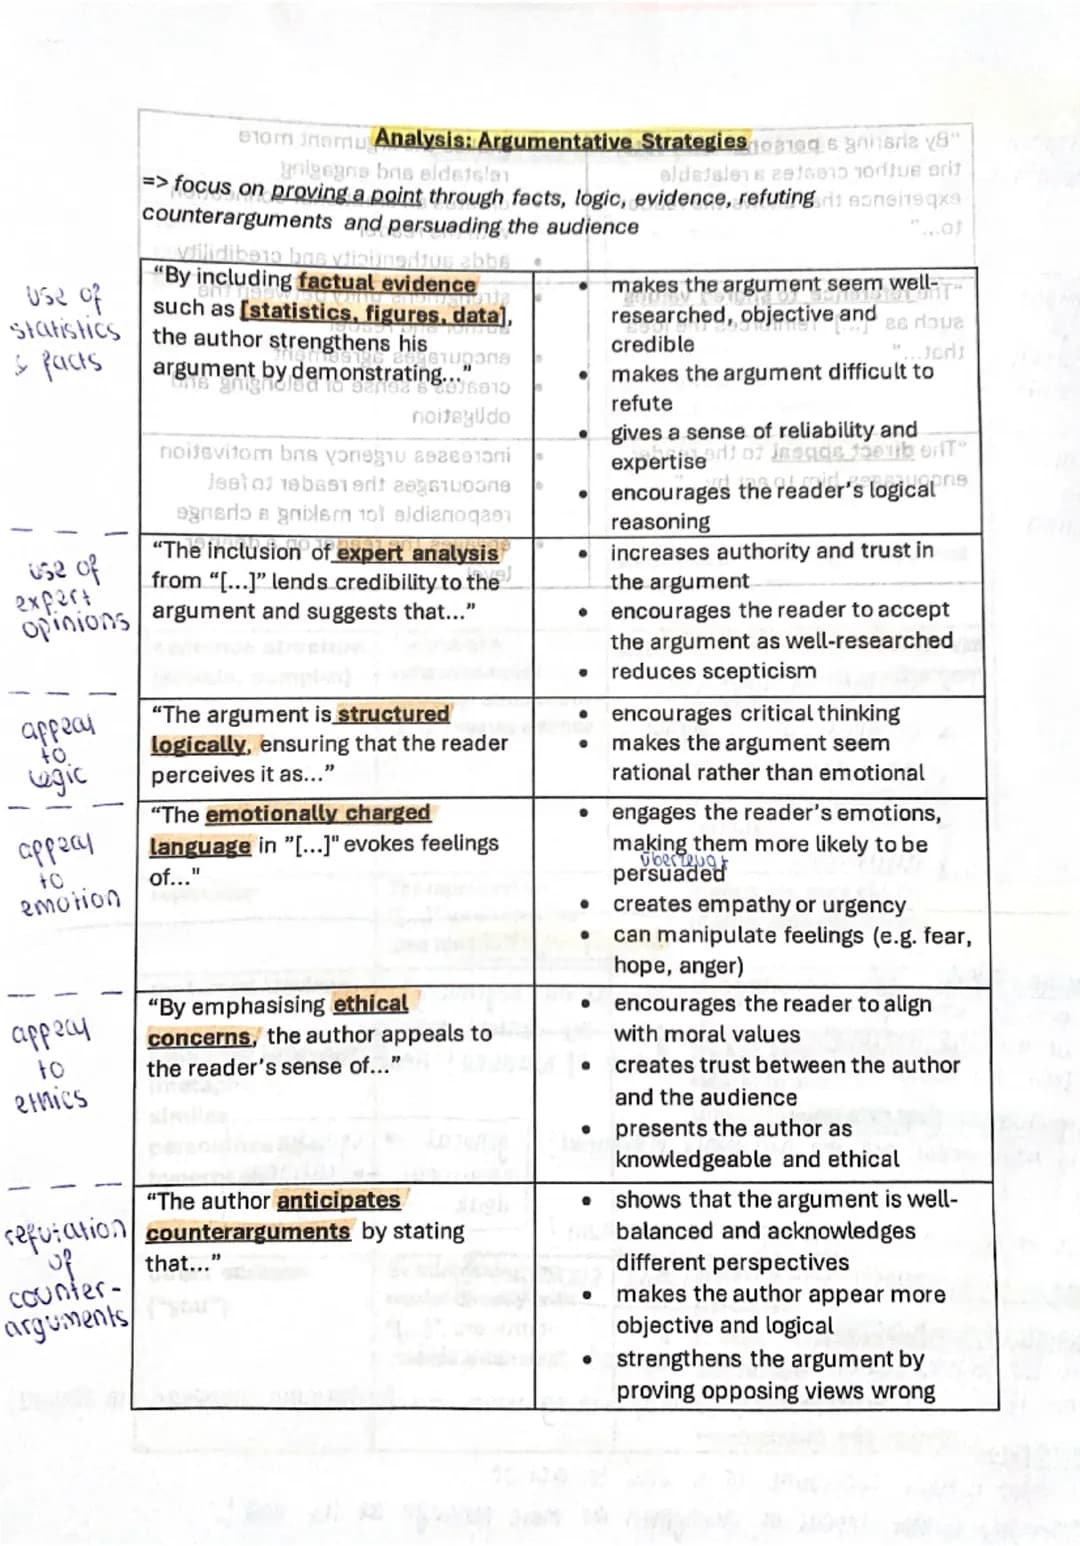 Analysis: Argumentative Strategies
=> focus on proving a point through facts, logic, evidence, refuting
counterarguments and persuading the audience
use of
statistics
& facts
"By including factual evidence
such as [statistics, figures, data],
the author strengthens his
argument by demonstrating..."
• makes the argument seem well-
researched, objective and
credible
• makes the argument difficult to
refute
• gives a sense of reliability and
expertise
• encourages the reader's logical
reasoning
use of
expert
opinions
"The inclusion of expert analysis
from "[...]" lends credibility to the
argument and suggests that..."
• increases authority and trust in
the argument
• encourages the reader to accept
the argument as well-researched
• reduces scepticism
appeal
to
logic
"The argument is structured
logically, ensuring that the reader
perceives it as..."
• encourages critical thinking
• makes the argument seem
rational rather than emotional
appeal
to
emotion
"The emotionally charged
language in "[...]" evokes feelings
of..."
• engages the reader's emotions,
making them more likely to be
überzeugt
persuaded
• creates empathy or urgency
• can manipulate feelings (e.g. fear,
hope, anger)
appeal
to
ethics
"By emphasising ethical
concerns, the author appeals to
the reader's sense of..."
• encourages the reader to align
with moral values
• creates trust between the author
and the audience
• presents the author as
knowledgeable and ethical
refutation
of
counter-
arguments
"The author anticipates
counterarguments by stating
that..."
• shows that the argument is well-
balanced and acknowledges
different perspectives
• makes the author appear more
objective and logical
• strengthens the argument by
proving opposing views wrong